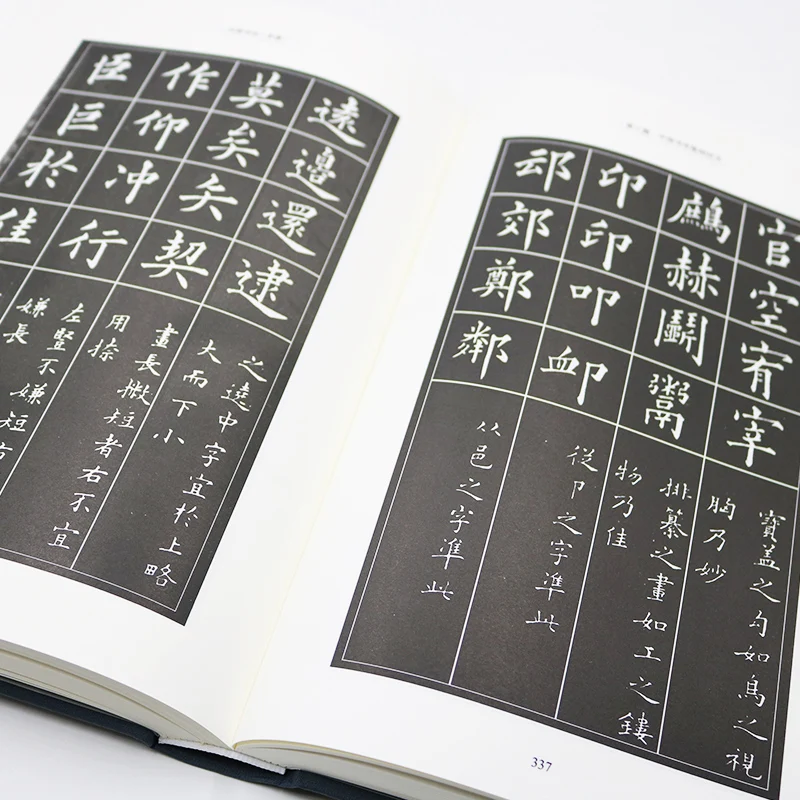 遠邊還逮
之遶中字宜於上略
大而下小
莫矣矢契
畫長撇短者右不宜
用捺
作仰冲行
左豎不嫌短右
嫌長
臣巨於佳
官空宥宰
寶盖之勾如鳥之視
胸乃妙
赫鬭鬻
排纂之畫如工之鏤
物乃佳
印印叩卹
從卩之字準此
郊鄭鄰
从邑之字準此
337